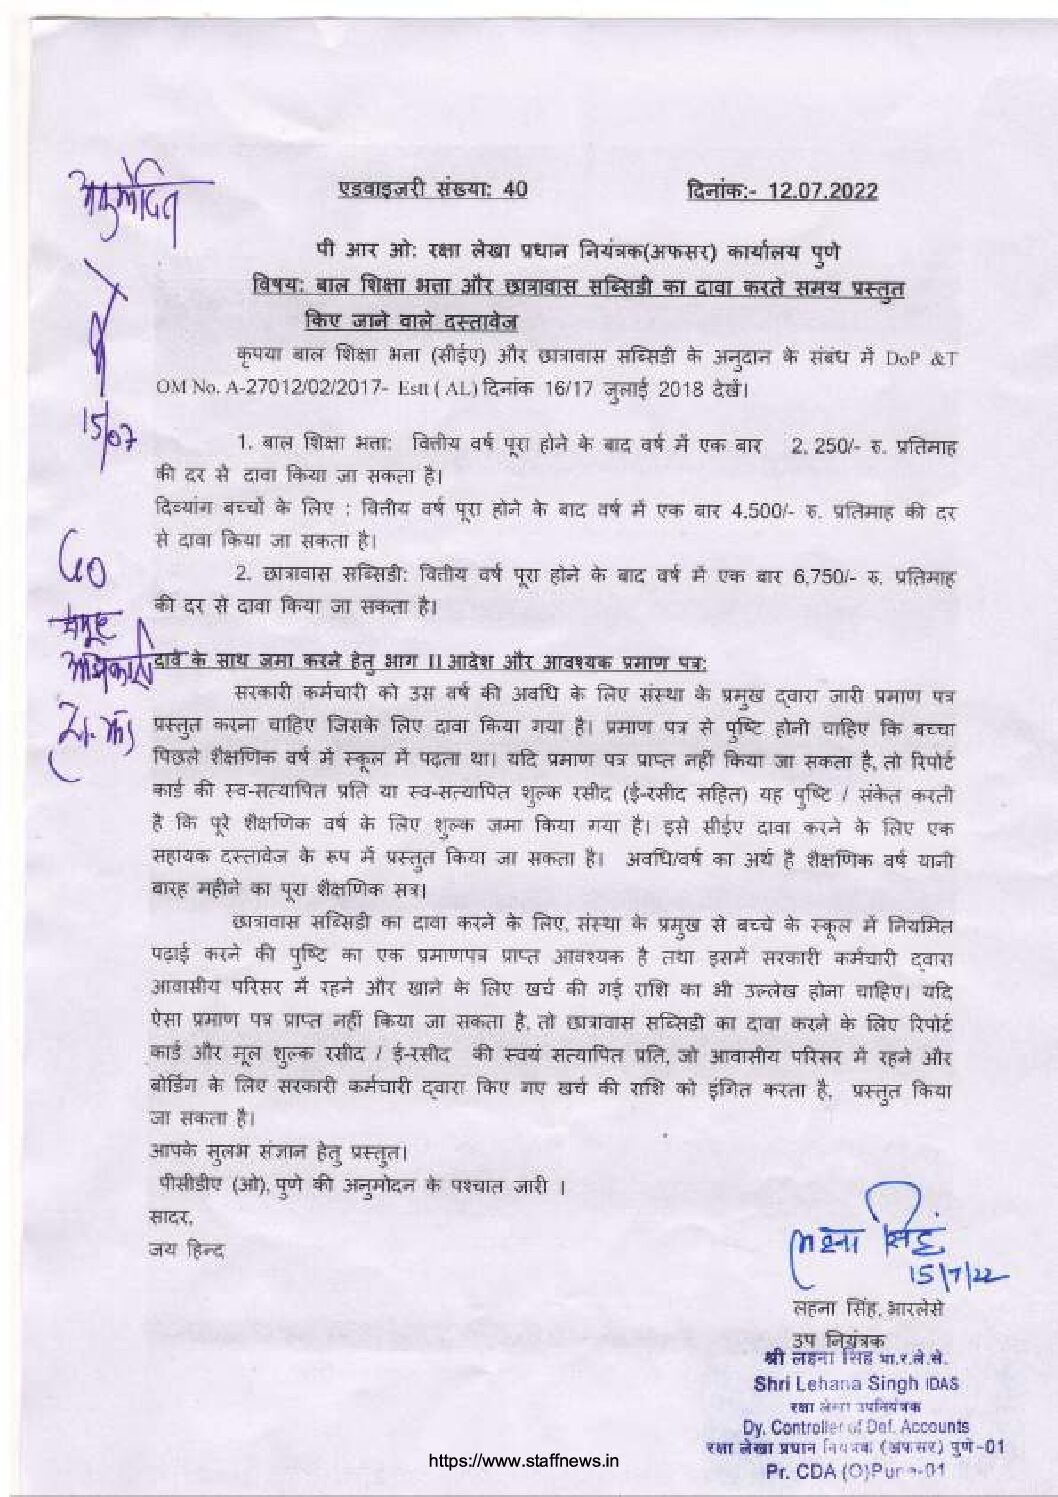 अनुमोदित
15/07
GO
समूह
अधिकारी
एडवाइजरी संख्या: 40 दिनांक:- 12.07.2022
पी आर ओ: रक्षा लेखा प्रधान नियंत्रक(अफसर) कार्यालय पुणे
विषय: बाल शिक्षा भत्ता और छात्रावास सब्सिडी का दावा करते समय प्रस्तुत
किए जाने वाले दस्तावेज
कृपया बाल शिक्षा भत्ता (सीईए) और छात्रावास सब्सिडी के अनुदान के संबंध में DoP &T
OM No. A-27012/02/2017- Estt ( AL) दिनांक 16/17 जुलाई 2018 देखें।
1. बाल शिक्षा भत्ता: वित्तीय वर्ष पूरा होने के बाद वर्ष में एक बार 2, 250/- रु. प्रतिमाह
की दर से दावा किया जा सकता है।
दिव्यांग बच्चों के लिए : वित्तीय वर्ष पूरा होने के बाद वर्ष में एक बार 4,500/- रु. प्रतिमाह की दर
से दावा किया जा सकता है।
2. छात्रावास सब्सिडी: वित्तीय वर्ष पूरा होने के बाद वर्ष में एक बार 6,750/- रु. प्रतिमाह
की दर से दावा किया जा सकता है।
दावे के साथ जमा करने हेतु भाग II आदेश और आवश्यक प्रमाण पत्र:
सरकारी कर्मचारी को उस वर्ष की अवधि के लिए संस्था के प्रमुख द्वारा जारी प्रमाण पत्र
प्रस्तुत करना चाहिए जिसके लिए दावा किया गया है। प्रमाण पत्र से पुष्टि होनी चाहिए कि बच्चा
पिछले शैक्षणिक वर्ष में स्कूल में पढ़ता था। यदि प्रमाण पत्र प्राप्त नहीं किया जा सकता है, तो रिपोर्ट
कार्ड की स्व-सत्यापित प्रति या स्व-सत्यापित शुल्क रसीद (ई-रसीद सहित) यह पुष्टि / संकेत करती
है कि पूरे शैक्षणिक वर्ष के लिए शुल्क जमा किया गया है। इसे सीईए दावा करने के लिए एक
सहायक दस्तावेज के रूप में प्रस्तुत किया जा सकता है। अवधि/वर्ष का अर्थ है शैक्षणिक वर्ष यानी
बारह महीने का पूरा शैक्षणिक सत्र।
छात्रावास सब्सिडी का दावा करने के लिए, संस्था के प्रमुख से बच्चे के स्कूल में नियमित
पढ़ाई करने की पुष्टि का एक प्रमाणपत्र प्राप्त आवश्यक है तथा इसमें सरकारी कर्मचारी द्वारा
आवासीय परिसर में रहने और खाने के लिए खर्च की गई राशि का भी उल्लेख होना चाहिए। यदि
ऐसा प्रमाण पत्र प्राप्त नहीं किया जा सकता है, तो छात्रावास सब्सिडी का दावा करने के लिए रिपोर्ट
कार्ड और मूल शुल्क रसीद / ई-रसीद की स्वयं सत्यापित प्रति, जो आवासीय परिसर में रहने और
बोर्डिंग के लिए सरकारी कर्मचारी द्वारा किए गए खर्च की राशि को इंगित करता है, प्रस्तुत किया
जा सकता है।
आपके सुलभ संज्ञान हेतु प्रस्तुत।
पीसीडीए (ओ), पुणे की अनुमोदन के पश्चात जारी ।
सादर,
जय हिन्द
लहना सिंह
15/7/22
लहना सिंह, भारलेसे
उप नियंत्रक
श्री लहना सिंह भा.र.ले.से.
Shri Lehana Singh IDAS
रक्षा लेखा उपनियंत्रक
Dy. Controller of Def. Accounts
रक्षा लेखा प्रधान नियंत्रक (अफसर) पुणे-01
Pr. CDA (O) Pune-01
https://www.staffnews.in